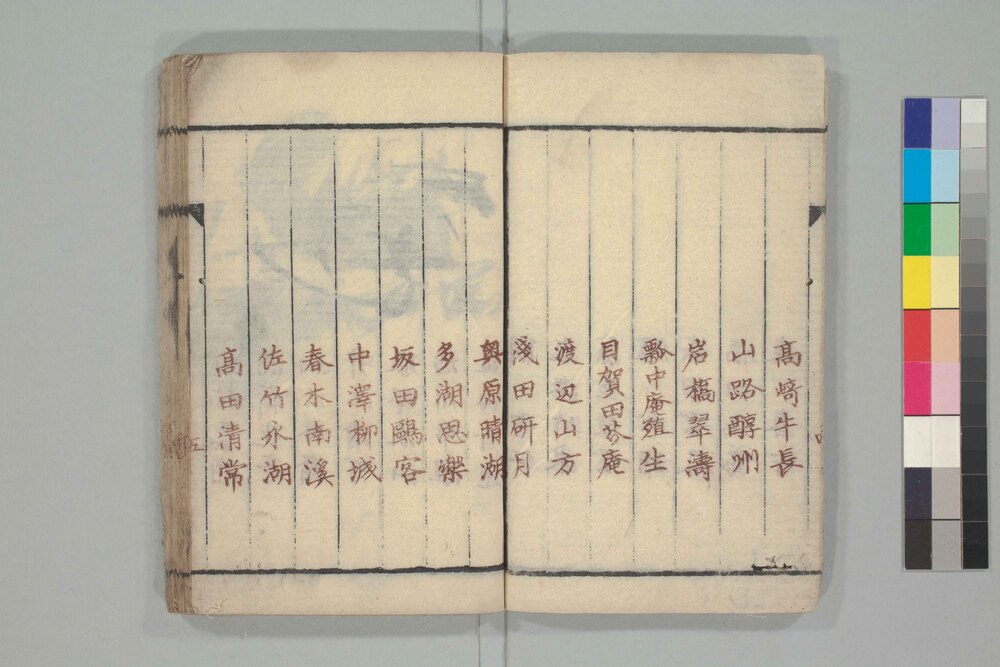 高崎牛長
山路醇州
岩橋翠濤
瓢中庵殖生
目賀田芥庵
渡辺山方
淺田研月
奥原晴湖
多湖思樂
坂田鷗客
中澤柳城
春木南溪
佐竹永湖
高田清常